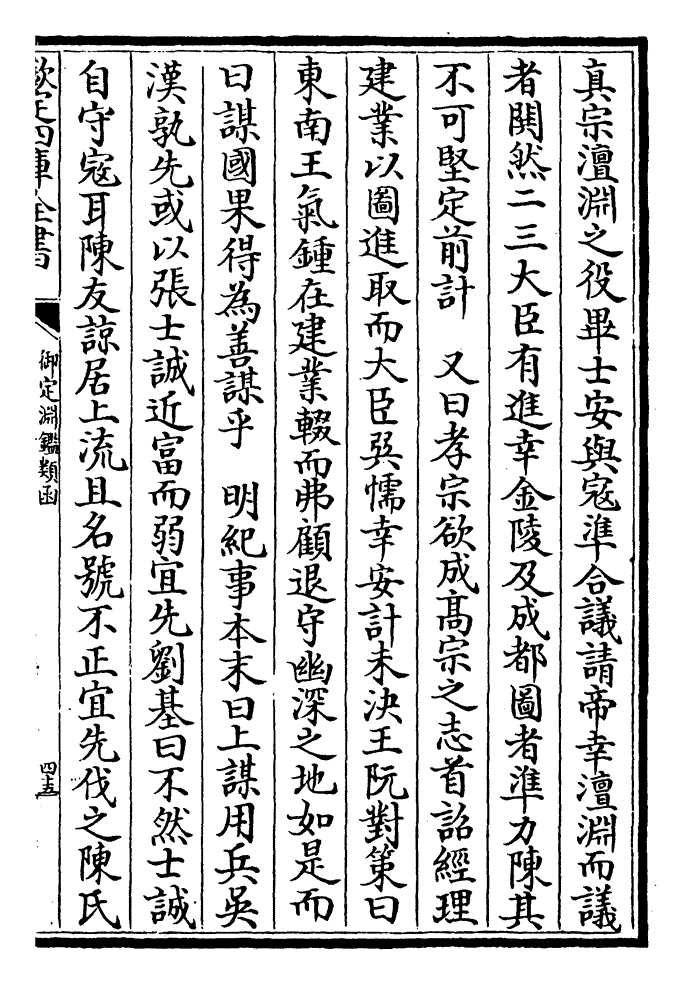 真宗澶淵之役畢士安與寇準合議請帝幸澶淵而議
者閧然二三大臣有進幸金陵及成都圖者準力陳其
不可堅定前計　又曰孝宗欲成髙宗之志首詔經理
建業以圖進取而大臣巽懦幸安計未決王阮對策曰
東南王氣鍾在建業輟而弗顧退守幽深之地如是而
曰謀國果得為善謀乎　明紀事本末曰上謀用兵吳
漢孰先或以張士誠近富而弱宜先劉基曰不然士誠
自守寇耳陳友諒居上流且名號不正宜先伐之陳氏
欽定四庫全書
御定淵鑑類函
四十五